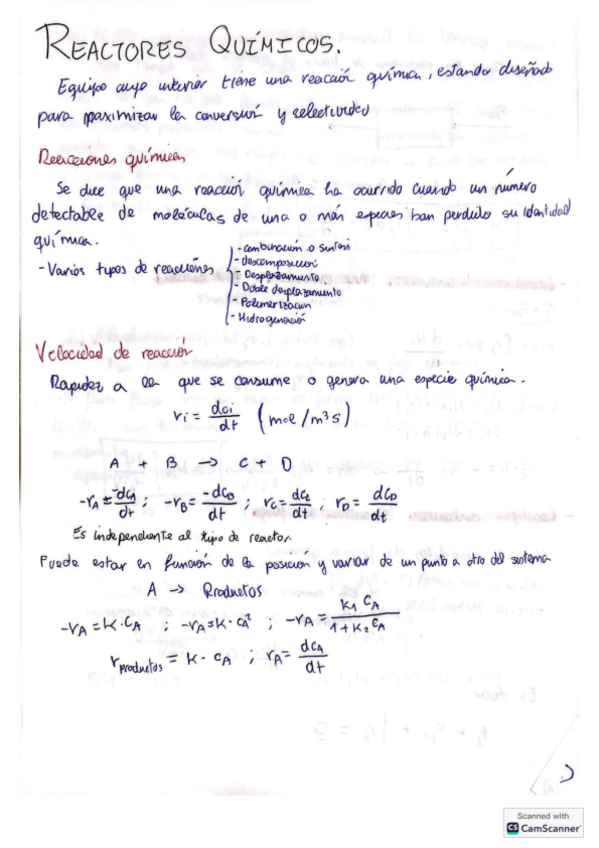 REACTORES QUÍMICOS.
Equipo cuyo interior tiene una reacción química, estando diseñado
para maximizar la conversión y selectividad
Reacciones químicas
Se dice que una reacción química ha ocurrido cuando un número
detectable de moléculas de una o más especies han perdido su identidad
química.
- Varios tipos de reacciones
- combinación o síntesis
- descomposición
- Desplazamiento
- Doble desplazamiento
- Polimerización
- Hidrogenación
Velocidad de reacción
Rapidez a la que se consume o genera una especie química.
ri = dci/dt (mol/m³s)
A + B → C + D
-rA = -dCA/dt ; -rB = -dCD/dt ; rC = dCc/dt ; rD = dCD/dt
Es independiente al tipo de reactor.
Puede estar en función de la posición y variar de un punto a otro del sistema
A → Productos
-rA = K·CA ; -rA = K·CA² ; -rA = K1 CA / 1 + K2 CA
rproductos = K·CA ; rA = dCA/dt
Scanned with
CS CamScanner